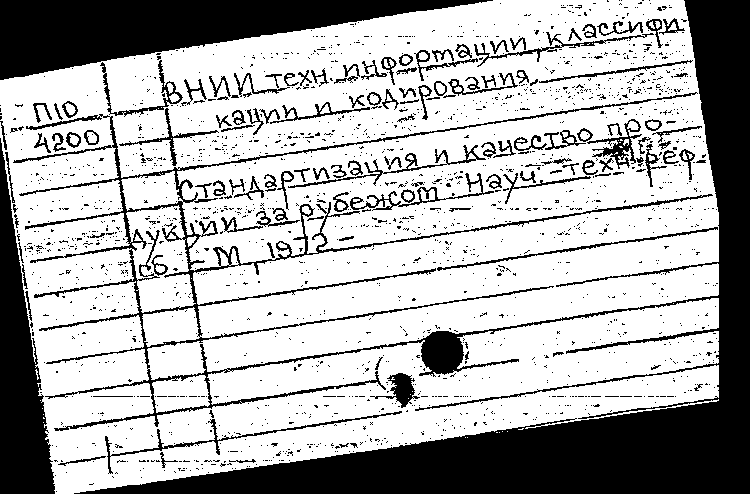 П10
4200
ВНИИ техн. информации, классифи-
кации и кодирования.
Стандартизация и качество про-
дукции за рубежом: Науч.-техн. реф.
сб. – М., 1972 –